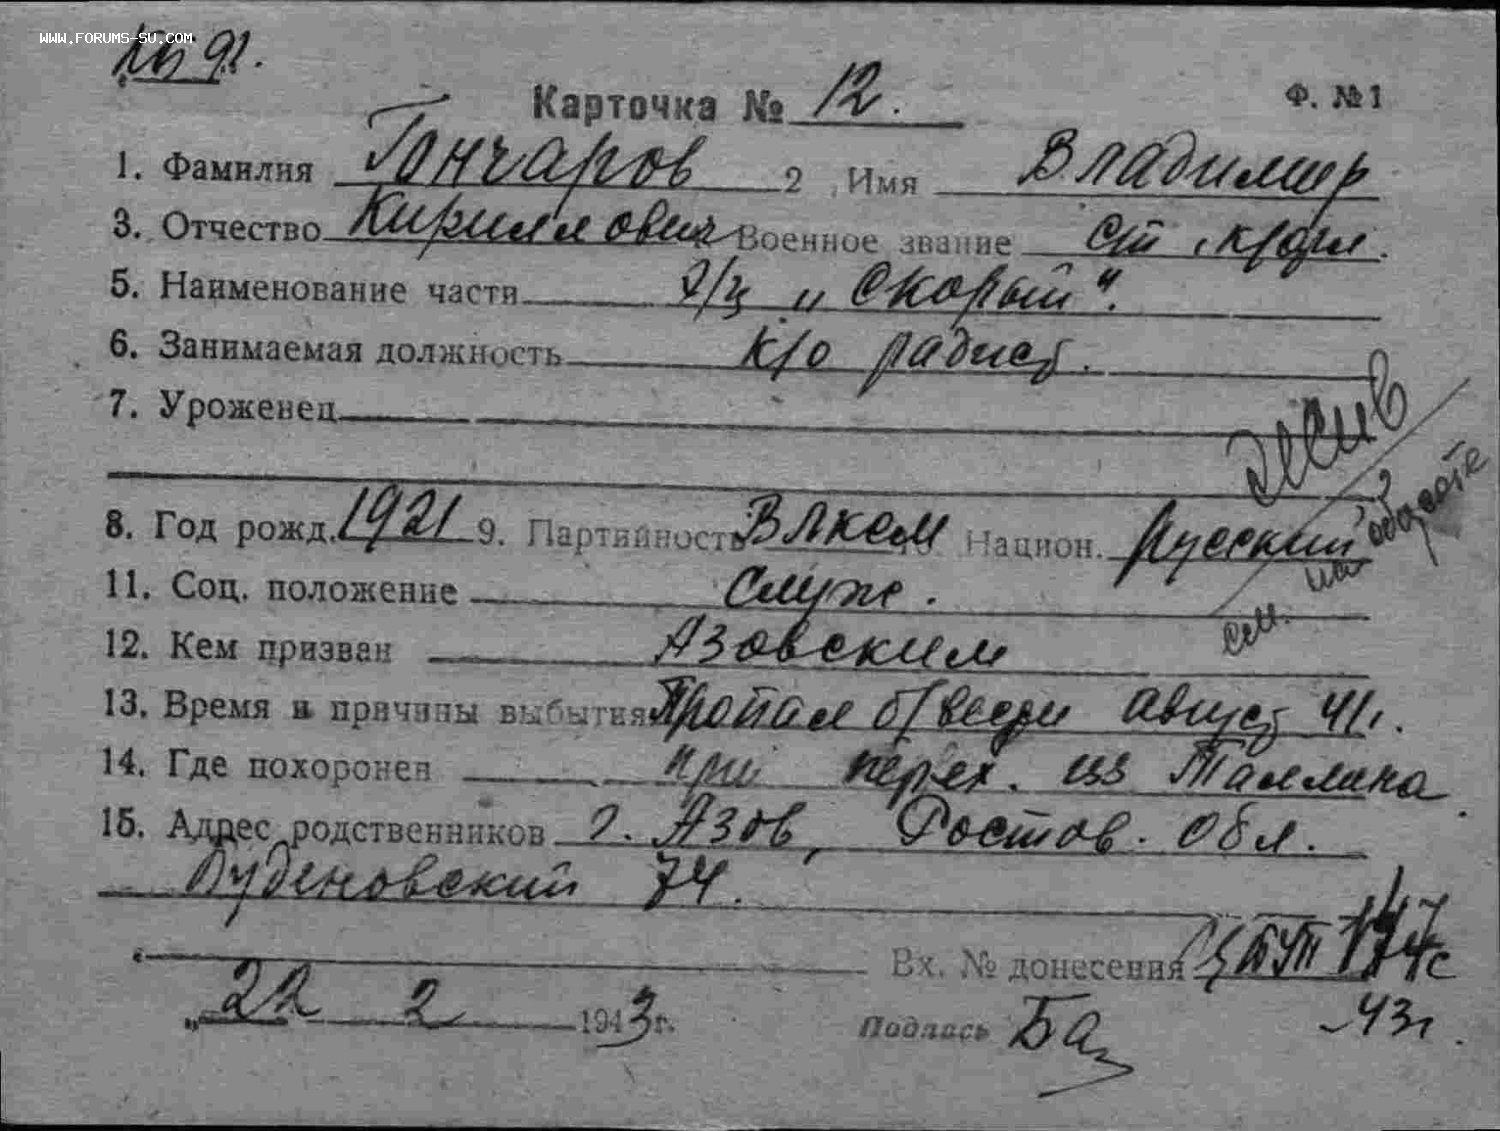 WWW.FORUMS-SU.COM
№ 91.
Карточка № 12.
Ф. №1
1. Фамилия Гончаров 2 Имя Владимир
3. Отчество Кириллович Военное звание ст. красл.
5. Наименование части "Скорый".
6. Занимаемая должность к/о радист.
7. Уроженец
8. Год рожд. 1921 9. Партийность ВЛКСМ Национ. Русский
11. Соц. положение Служ.
12. Кем призван Азовским
13. Время и причины выбытия Пропал б/вести август 41г.
14. Где похоронен при перех. из Таллина
15. Адрес родственников г. Азов, Ростов. обл.
Буденовский 74.
Вх. № донесения
43г.
„22 2 1943г.
Подпись Ба
на обороте